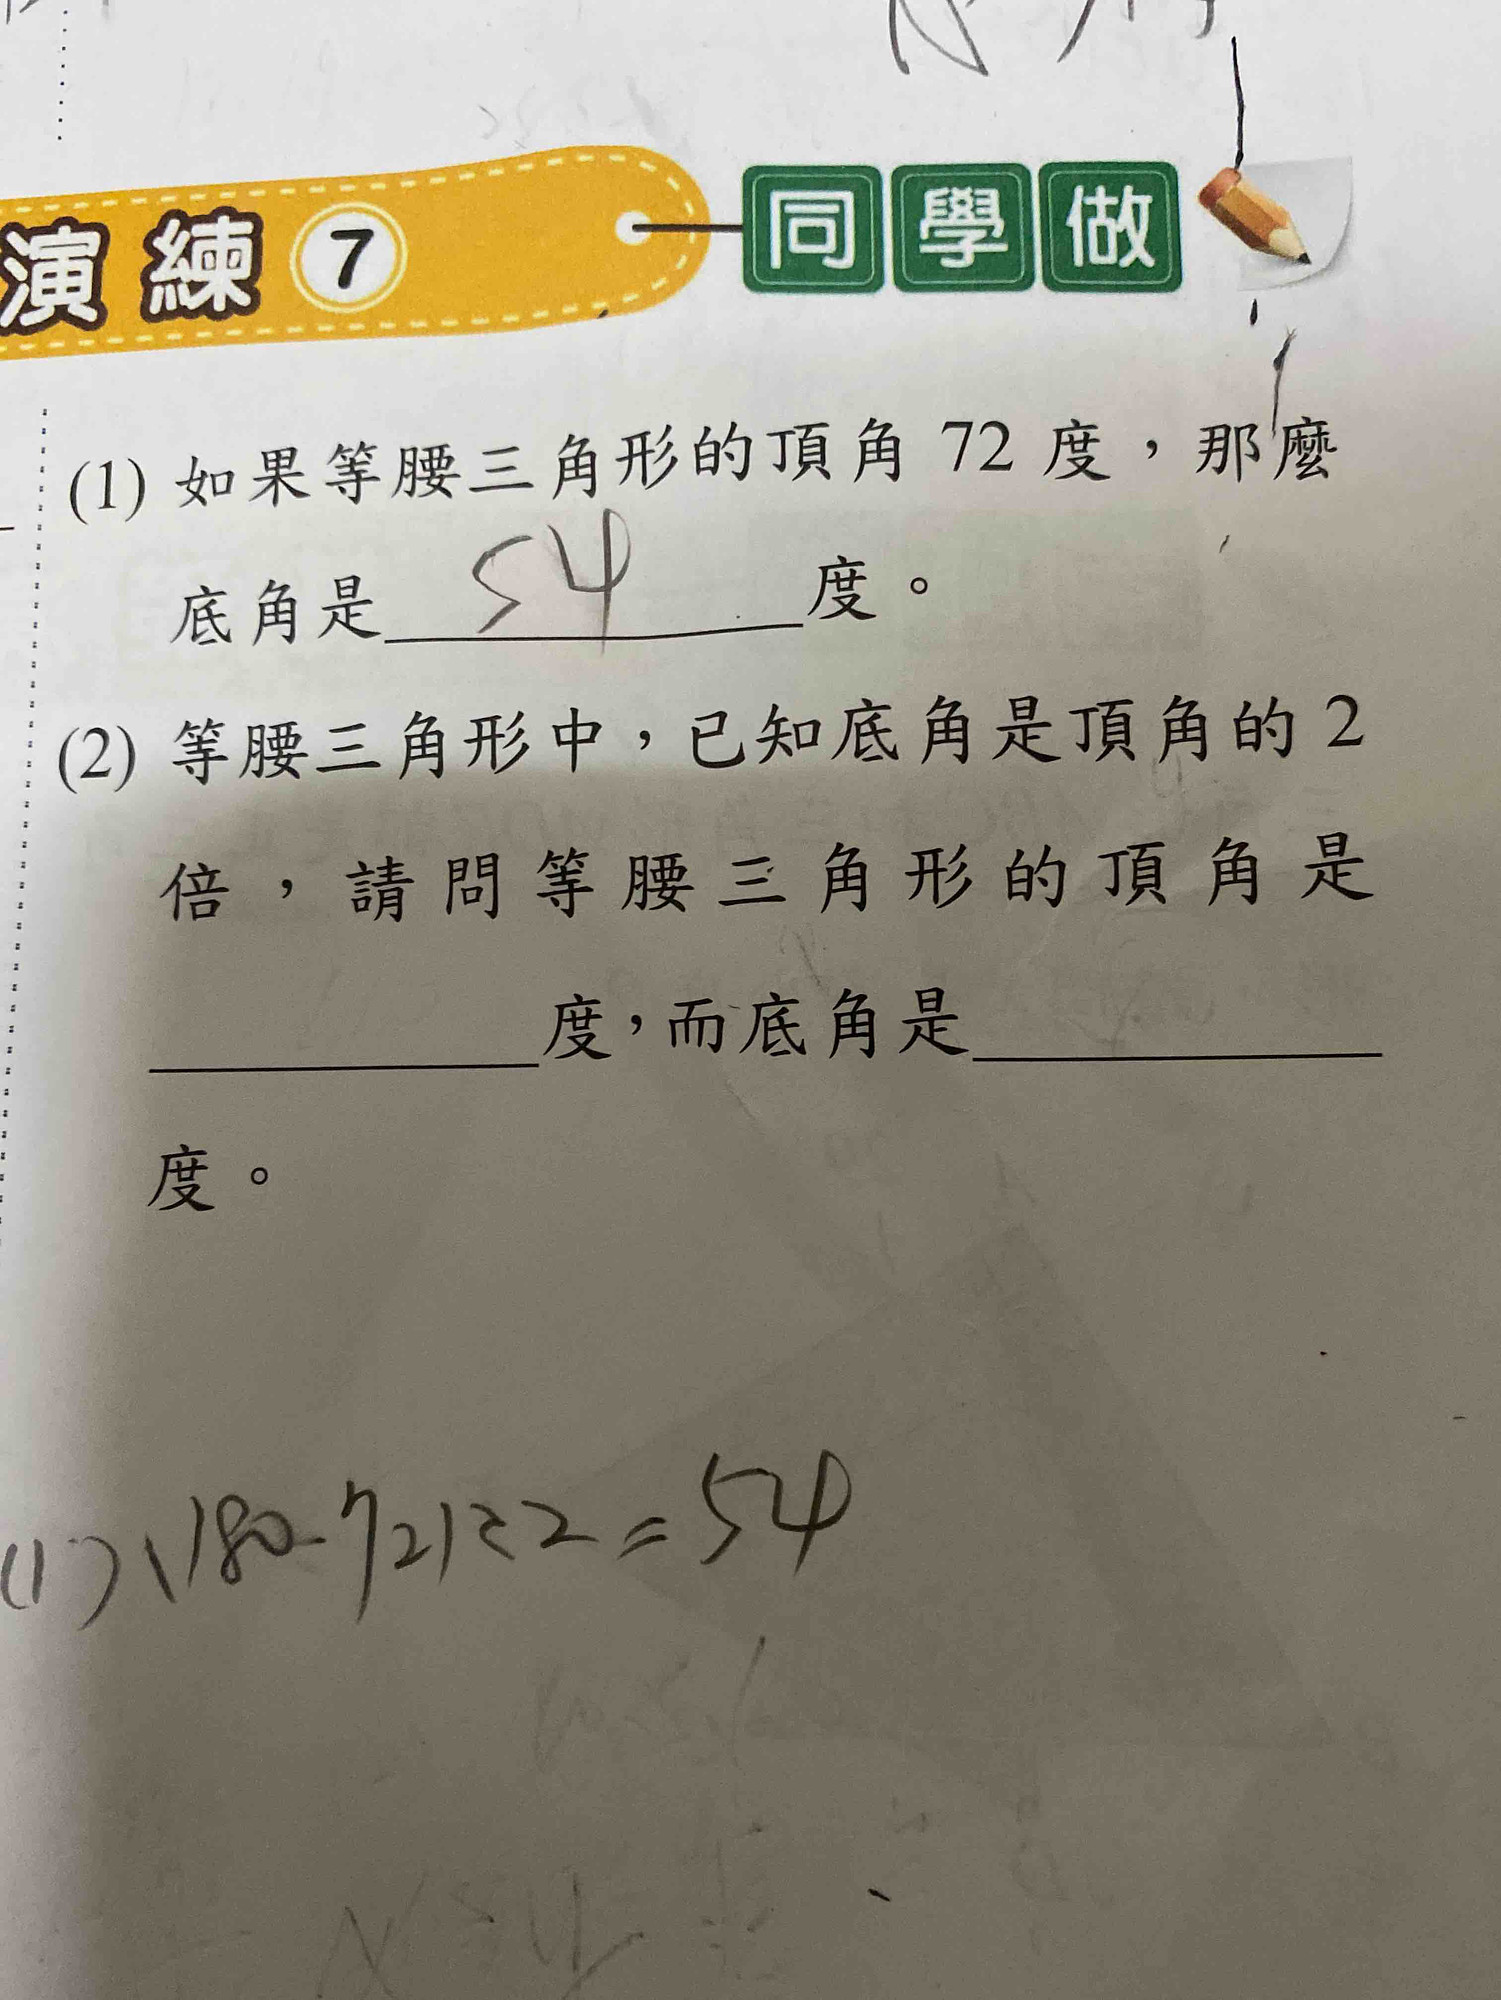 演練7 同學做
(1) 如果等腰三角形的頂角 72 度，那麼
底角是 54 度。
(2) 等腰三角形中，已知底角是頂角的 2
倍，請問等腰三角形的頂角是
度，而底角是
度。
(1) (180-72)÷2=54